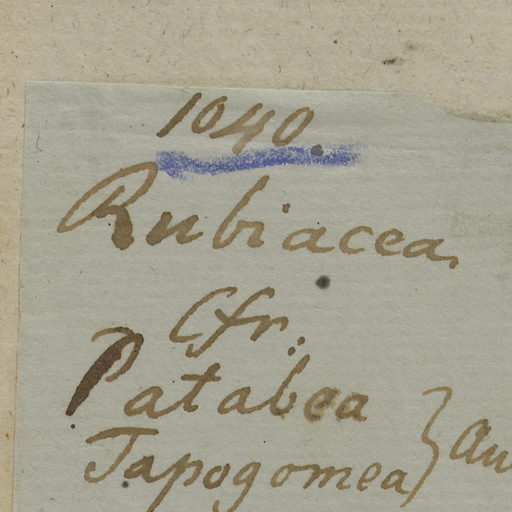 1040.
Rubiacea.
Cfr.
Patabea
Tapogomea }